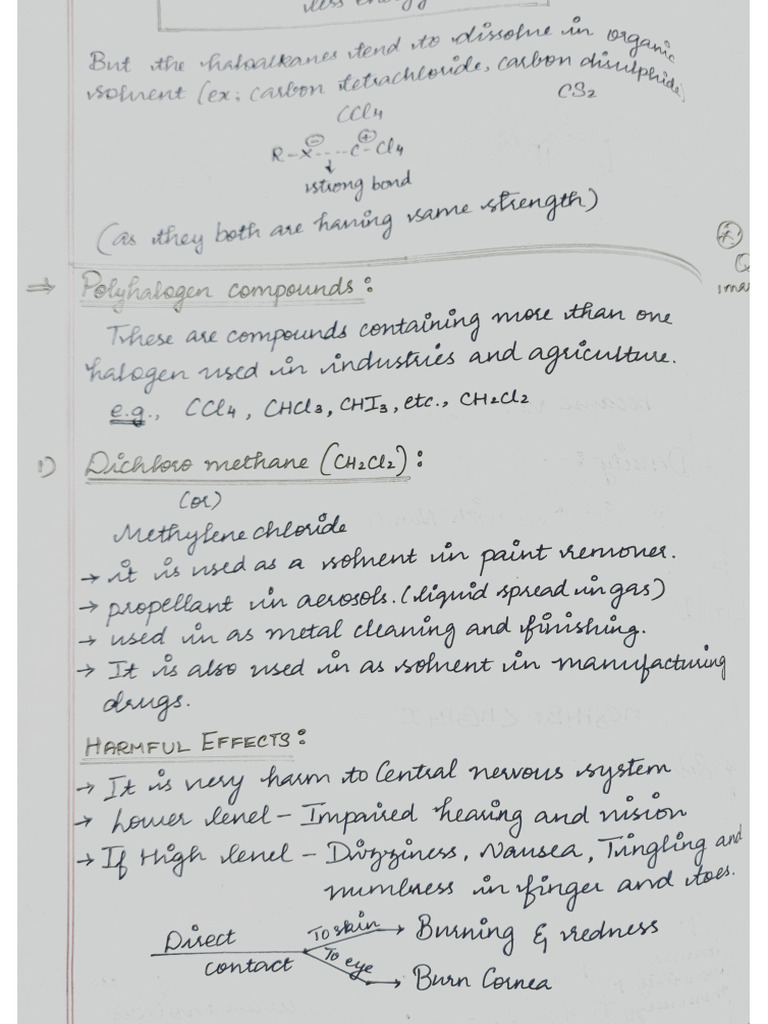 less energy
But the haloalkanes tend to dissolve in organic
solvent (ex: carbon tetrachloride, carbon disulphide)
CCl4 CS2
R-X⊖----C⊕-Cl4
↓
strong bond
(as they both are having same strength)
⇒ Polyhalogen compounds:
These are compounds containing more than one
halogen used in industries and agriculture.
e.g., CCl4, CHCl3, CHI3, etc., CH2Cl2
1) Dichloro methane (CH2Cl2):
(or)
Methylene chloride
→ it is used as a solvent in paint remover.
→ propellant in aerosols. (liquid spread in gas)
→ used in as metal cleaning and finishing.
→ It is also used in as solvent in manufacturing
drugs.
HARMFUL EFFECTS:
→ It is very harm to Central nervous system
→ Lower level - Impaired hearing and vision
→ If High level - Dizziness, Nausea, Tingling and
numbness in finger and toes.
Direct contact
To skin → Burning & redness
To eye → Burn Cornea